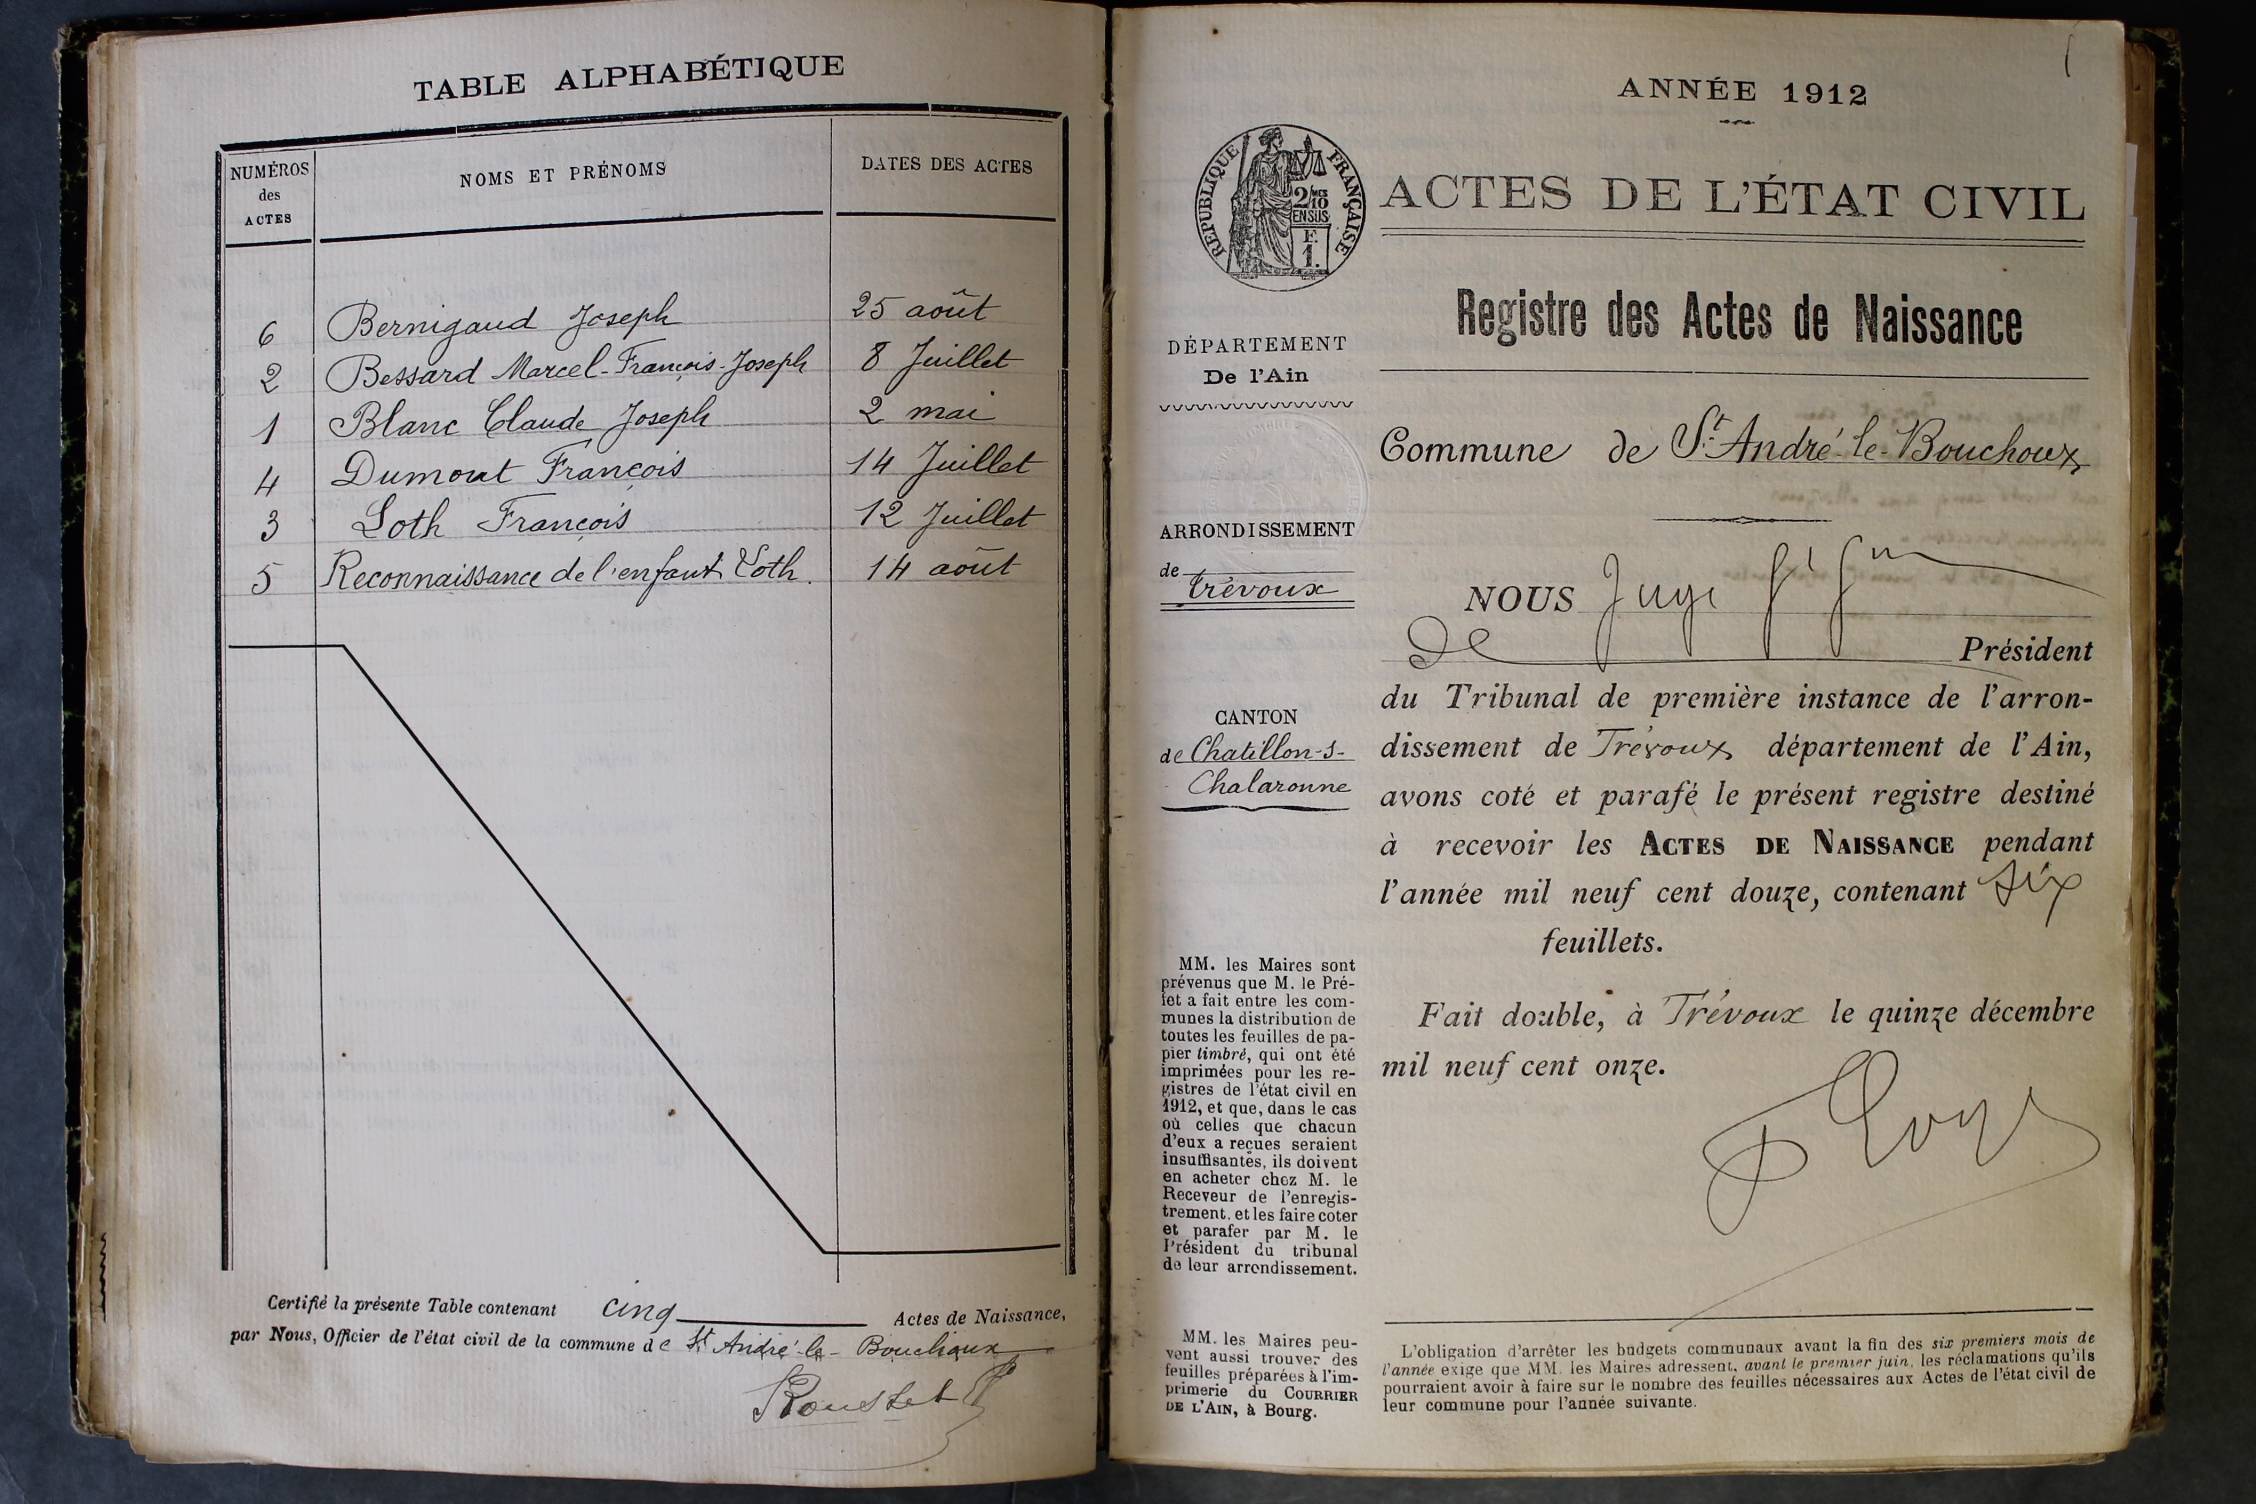 TABLE ALPHABÉTIQUE
NUMÉROS
des
ACTES
NOMS ET PRÉNOMS
DATES DES ACTES
6 Bernigaud Joseph 25 août
2 Bessard Marcel-François-Joseph 8 Juillet
1 Blanc Claude Joseph 2 mai
4 Dumont François 14 Juillet
3 Loth François 12 Juillet
5 Reconnaissance de l'enfant Loth. 14 août
Certifié la présente Table contenant cinq Actes de Naissance,
par Nous, Officier de l'état civil de la commune de St André-le-Bouchoux
ANNÉE 1912
RÉPUBLIQUE FRANÇAISE
2/10
EN SUS
F.
1.
ACTES DE L'ÉTAT CIVIL
Registre des Actes de Naissance
DÉPARTEMENT
De l'Ain
Commune de St-André-le-Bouchoux
ARRONDISSEMENT
de Trévoux
CANTON
de Chatillon-s-
Chalaronne
NOUS Juge
De Président
du Tribunal de première instance de l'arron-
dissement de Trévoux département de l'Ain,
avons coté et parafé le présent registre destiné
à recevoir les ACTES DE NAISSANCE pendant
l'année mil neuf cent douze, contenant six
feuillets.
Fait double, à Trévoux le quinze décembre
mil neuf cent onze.
MM. les Maires sont
prévenus que M. le Pré-
fet a fait entre les com-
munes la distribution de
toutes les feuilles de pa-
pier timbré, qui ont été
imprimées pour les re-
gistres de l'état civil en
1912, et que, dans le cas
où celles que chacun
d'eux a reçues seraient
insuffisantes, ils doivent
en acheter chez M. le
Receveur de l'enregis-
trement, et les faire coter
et parafer par M. le
Président du tribunal
de leur arrondissement.
MM. les Maires peu-
vent aussi trouver des
feuilles préparées à l'im-
primerie du COURRIER
DE L'AIN, à Bourg.
L'obligation d'arrêter les budgets communaux avant la fin des six premiers mois de
l'année exige que MM. les Maires adressent, avant le premier juin, les réclamations qu'ils
pourraient avoir à faire sur le nombre des feuilles nécessaires aux Actes de l'état civil de
leur commune pour l'année suivante.